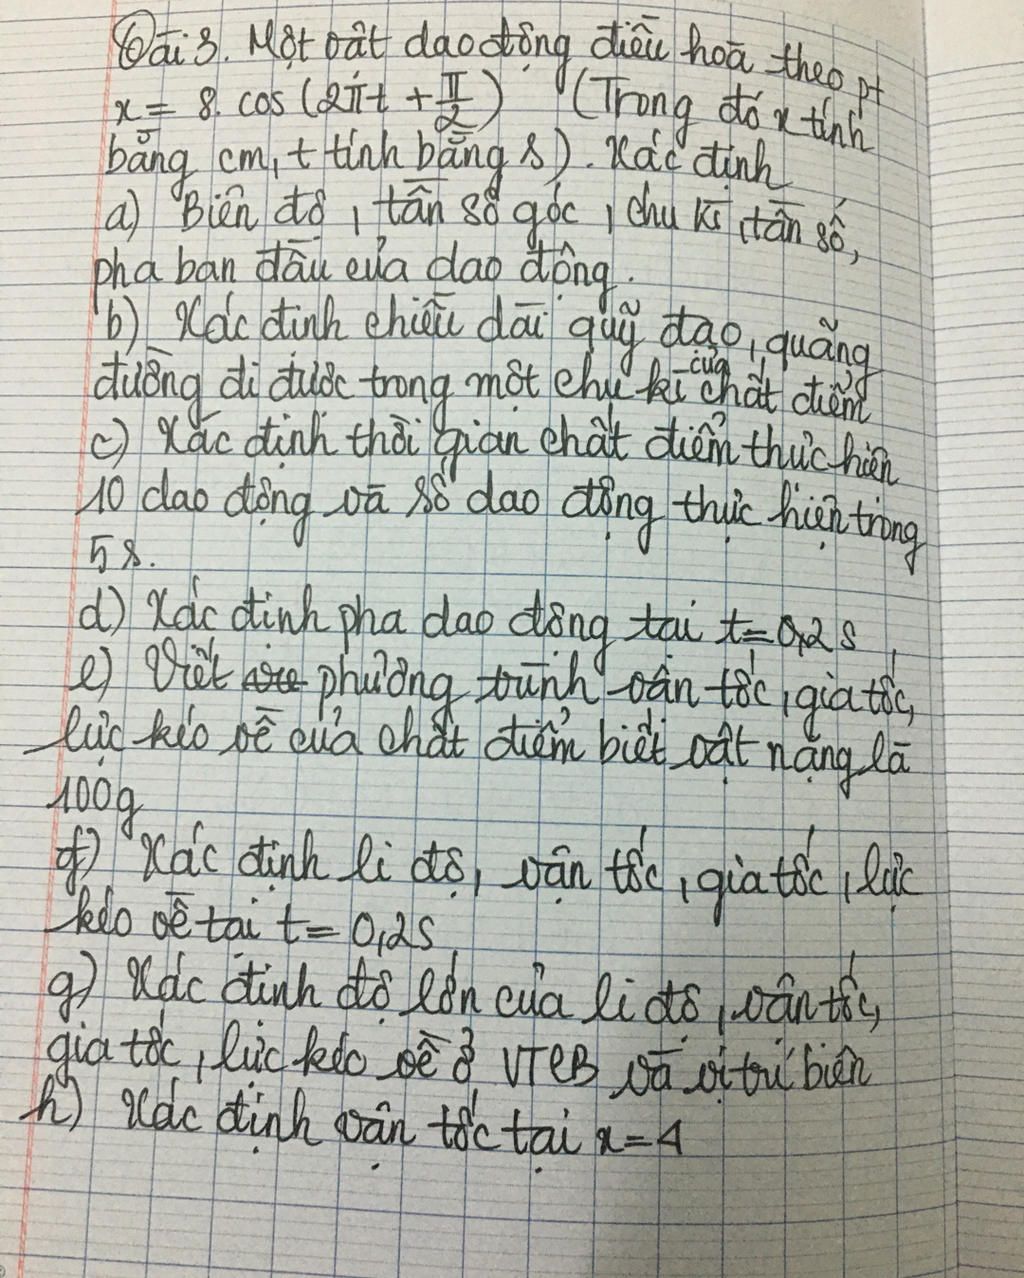 Bài 3. Một vật dao động điều hoà theo pt
x = 8. cos (2πt + π/2) (Trong đó x tính
bằng cm, t tính bằng s). Xác định
a) Biên độ, tần số góc, chu kì, tần số,
pha ban đầu của dao động.
b) Xác định chiều dài quỹ đạo, quãng
đường đi được trong một chu kì của chất điểm
c) Xác định thời gian chất điểm thực hiện
10 dao động và số dao động thực hiện trong
5s.
d) Xác định pha dao động tại t = 0,2s
e) Viết phương trình vận tốc, gia tốc,
lực kéo về của chất điểm biết vật nặng là
100g
f) Xác định li độ, vận tốc, gia tốc, lực
kéo về tại t = 0,2s
g) Xác định độ lớn của li độ, vận tốc,
gia tốc, lực kéo về ở VTCB và vị trí biên
h) Xác định vận tốc tại x = 4